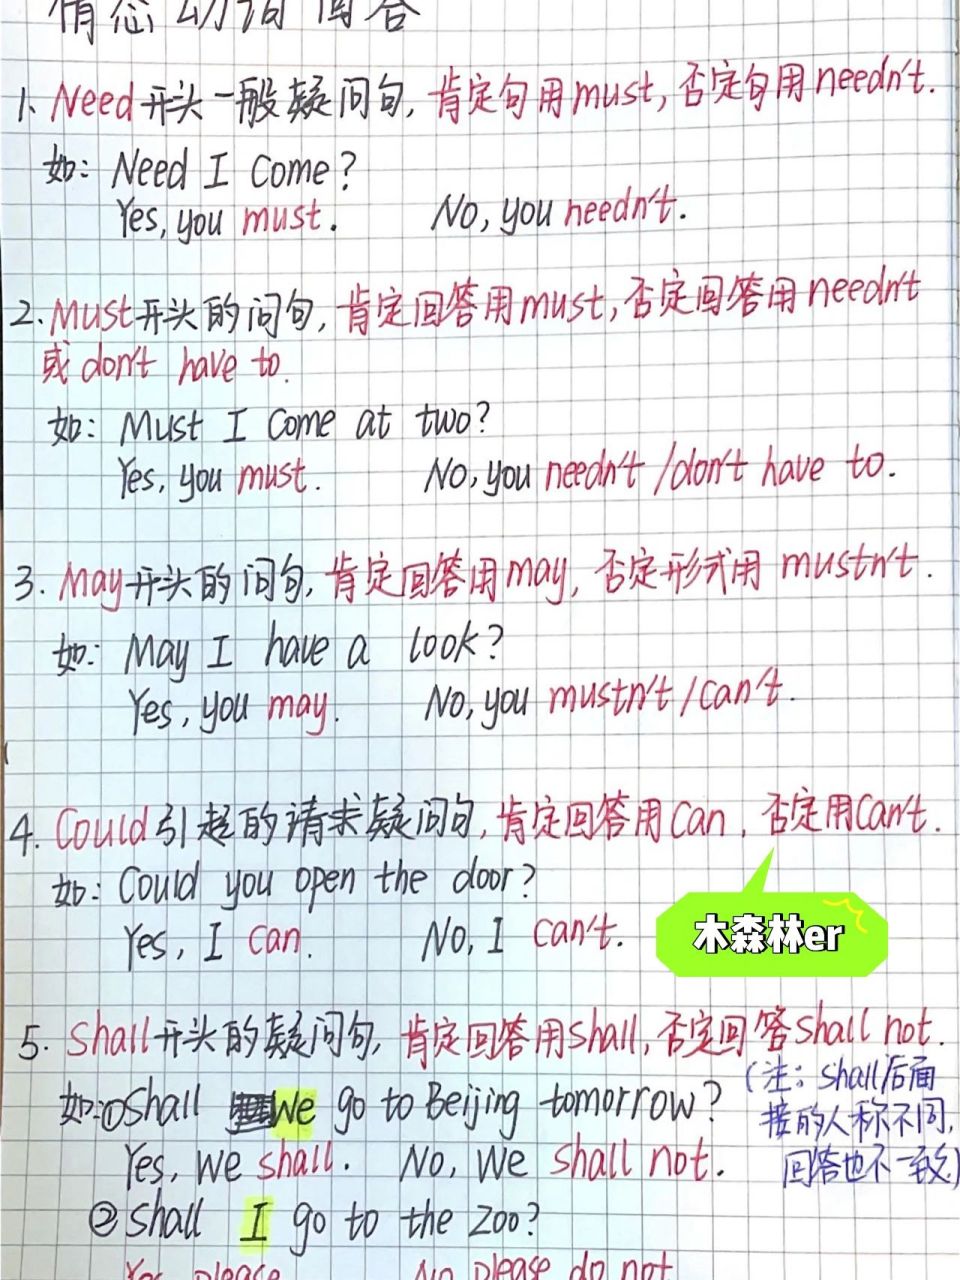 情态动词回答
1. Need开头一般疑问句, 肯定句用must, 否定句用needn't.
如: Need I come?
Yes, you must. No, you needn't.
2. Must开头的问句, 肯定回答用must, 否定回答用needn't
或 don't have to.
如: Must I come at two?
Yes, you must. No, you needn't /don't have to.
3. May开头的问句, 肯定回答用may, 否定形式用 mustn't.
如: May I have a look?
Yes, you may. No, you mustn't /can't.
4. Could引起的请求疑问句, 肯定回答用can, 否定用can't.
如: Could you open the door?
Yes, I can. No, I can't.
木森林er
5. Shall开头的疑问句, 肯定回答用shall, 否定回答shall not.
(注: shall后面
接的人称不同,
回答也不一致)
如:①Shall we go to Beijing tomorrow?
Yes, we shall. No, we shall not.
②Shall I go to the zoo?
Yes please No please do not